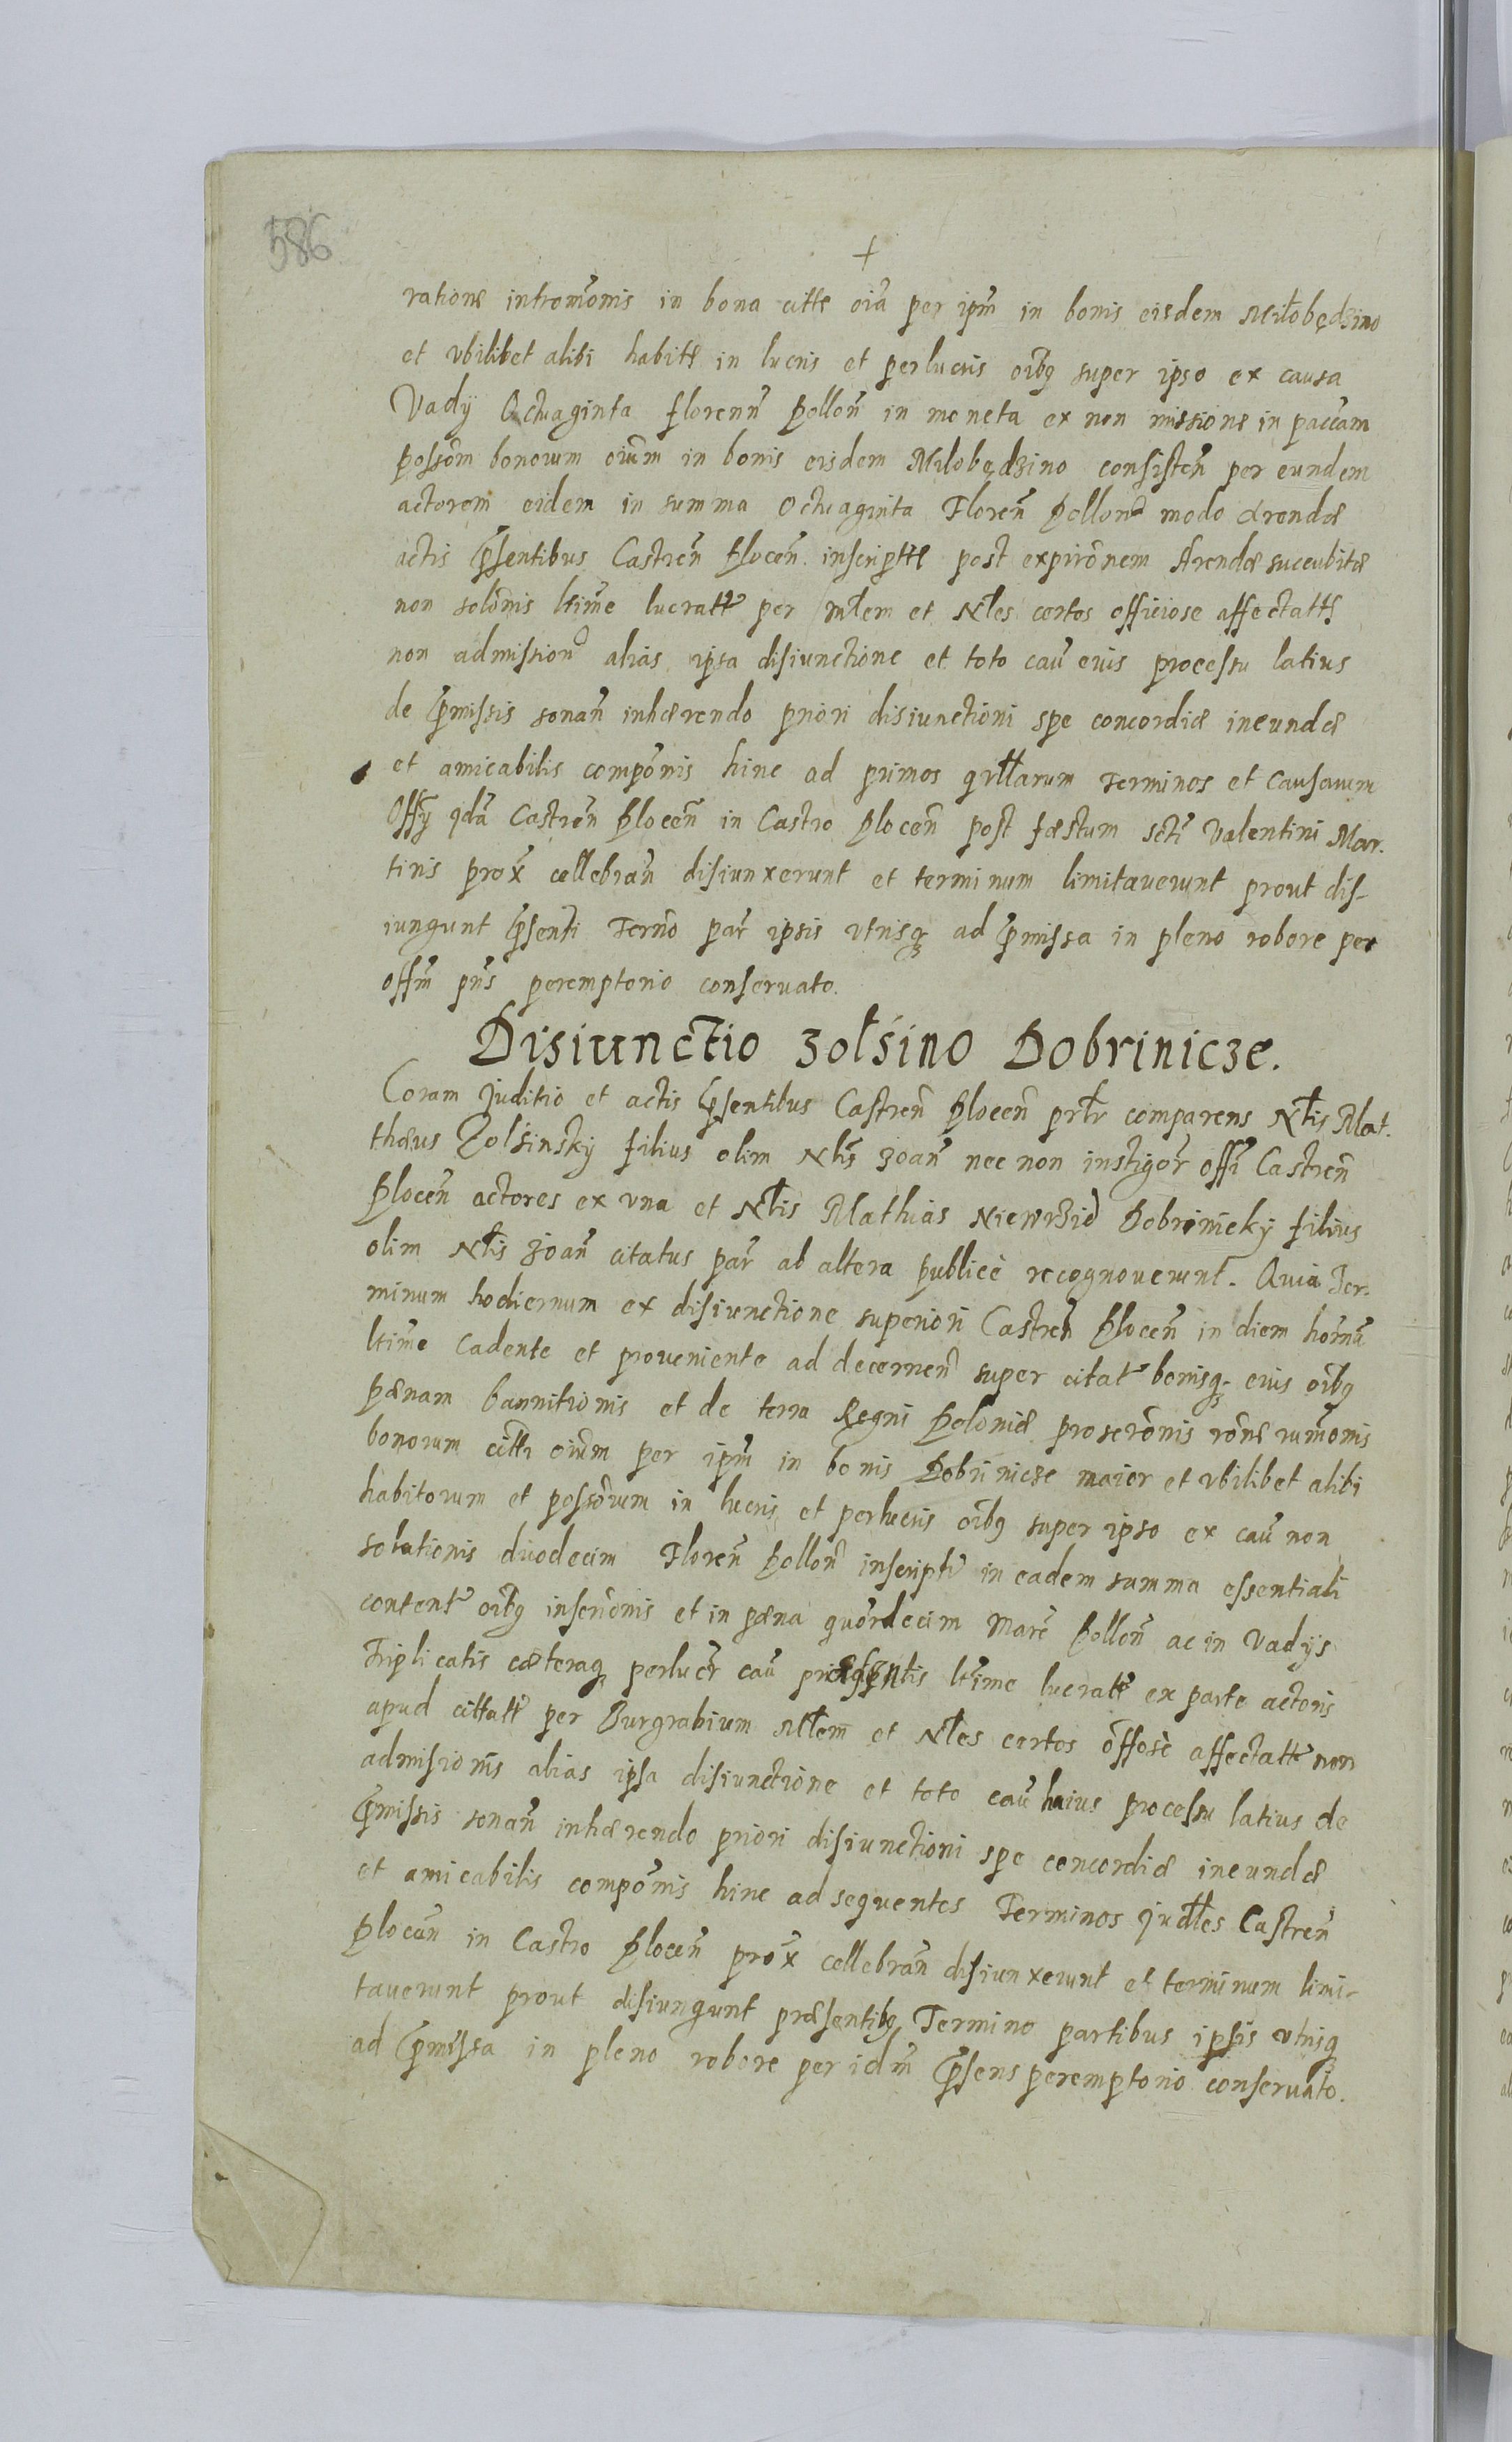 586
+
ratione intromõnis in bona citti oĩa per ipm̃ in bonis eisdem Miłobędzino
et vbilibet alibi habite in lucris et perlucris oĩbq super ipso ex causa
Vadÿ Octuaginta florenn̄ Pollon̄ in moneta ex non missione in paccam
possõm bonorum oĩum in bonis eisdem Miłobędzino consisten̄ per eundem
actorem eidem in summa Octuaginta Floren̄ Pollon̄ modo Arendæ
actis p̃sentibus Castren̄ Plocen̄ inscripttæ post expirõnem Arendæ succubitæ
non solõnis ltĩme lucratt per Młem et Nłes certos officiose affectatt
non admission̄ alias ipsa disiunctione et toto cau eius processu latius
de p̃missis sonan̄ inhærendo priori disiunctioni spe concordiæ ineundæ
et amicabilis compõnis hinc ad primos qrłłarum Terminos et Causarum
Offÿ idã Castren̄ Plocen̄ in Castro Plocen̄ post fæstum scti Valentini Mar.
tiris prox̃ cellebran̄ disiunxerunt et terminum limitauerunt prout dis-
iungunt p̃senti Termo par̃ ipsis vtrisq ad p̃missa in pleno robore per
offm̃ pñs peremptorio conseruato.
Disiunctio Zołsino Dobrinicze.
Coram Juditio et actis p̃sentibus Castren̄ Plocen̄ prłr comparens Nłis Mat.
thæus Zolsinskÿ filius olim Nłis Joan̄ nec non instigõr offi Castren̄
Plocen̄ actores ex vna et Nłis Mathias Niewrzid Dobrinickÿ filius
olim Nłis Joan̄ citatus par̃ ab altera publicè recognouerunt. Quia Ter-
minum hodiernum ex disiunctione superiori Castren̄ Plocen̄ in diem hornũ
ltĩme Cadente et proueniente ad decernen̄ super citat bonisq eius oĩbq
pænam bannitionis et de terra Regni Poloniæ proscrõnis rõne rummõnis
bonorum citti oĩum per ipm̃ in bonis Dobrinicze maior et vbilibet alibi
habitorum et possõrum in lucris et perlucris oĩbq super ipso ex cau non
solutionis duodecim Floren̄ Pollon̄ inscript in eadem summa essentiali
content oĩbq inscrõnis et in pæna quordecim Marc̃ Pollon̄ ac in Vadÿs
Triplicatis cæteraq perlucr̃ cau præsentis ltĩme lucratt ex parte actoris
apud cittatt per Burgrabium Młem et Nłes certos õffosè affectatt non
admisionis alias ipsa disiunctione et toto cau huius processu latius de
p̃missis sonan̄ inhærendo priori disiunctioni spe concordiæ ineundæ
et amicabilis compõnis hinc ad sequentes Terminos Judłłes Castren̄
Plocen̄ in Castro Plocen̄ prox̃ cellebran̄ disiunxerunt et terminum limi-
tauerunt prout disiungunt præsentibq Termino partibus ipsis vtrisq
ad p̃missa in pleno robore per idm̃ p̃sens peremptorio conseruato.